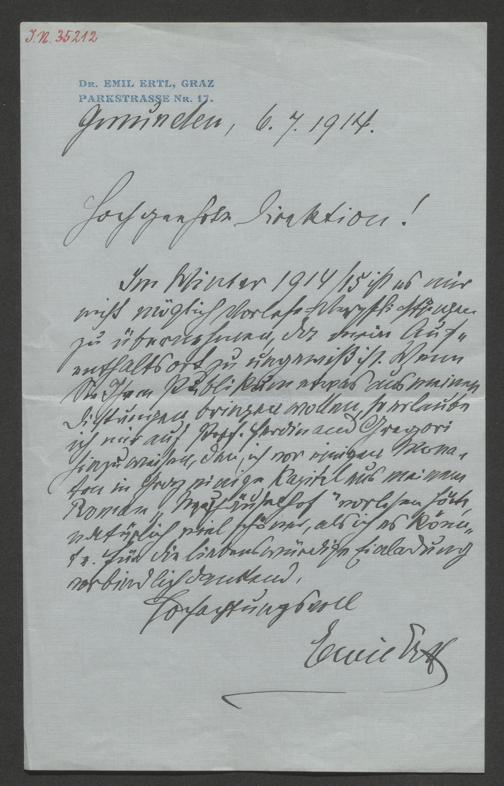 J.N. 35212
DR. EMIL ERTL, GRAZ
PARKSTRASSE NR. 17.
Gmunden, 6. 7. 1914.
Hochgeehrte Direktion!
Im Winter 1914/15 ist es mir
nicht möglich Vorlese-Verpflichtungen
zu übernehmen, da mein Auf-
enthaltsort zu ungewiß ist. Wenn
Sie Ihrem Publikum etwas aus meinen
Dichtungen bringen wollen, so erlaube
ich mir auf Prof. Ferdinand Gregori
hinzuweisen, den ich vor einigen Mona-
ten in Graz einige Kapitel aus meinem
Roman „Neuhäuselhof" vorlesen hörte,
natürlich viel schöner, als ich es könn-
te. Für die liebenswürdige Einladung
verbindlich dankend,
Hochachtungsvoll
Emil Ertl